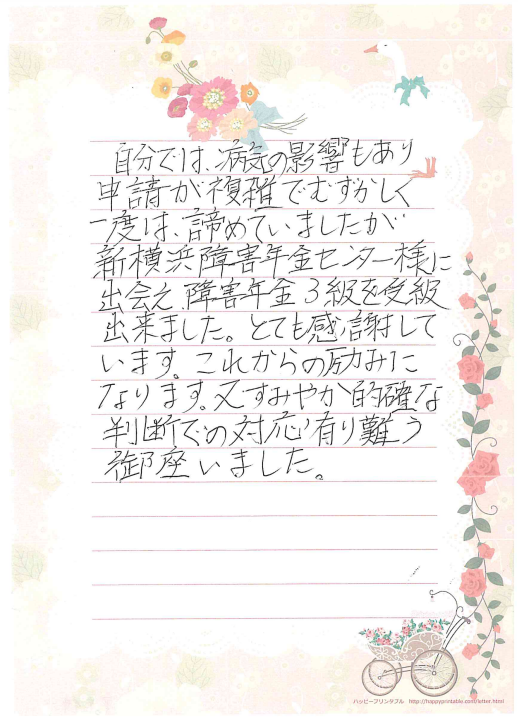 自分では、病気の影響もあり
申請が複雑でむずかしく
一度は、諦めていましたが
新横浜障害年金センター様に
出会え障害年金3級を受級
出来ました。とても感謝して
います。これからの励みに
なります。又すみやか的確な
判断での対応有り難う
御座いました。
ハッピープリンタブル http://happyprintable.com/letter.html